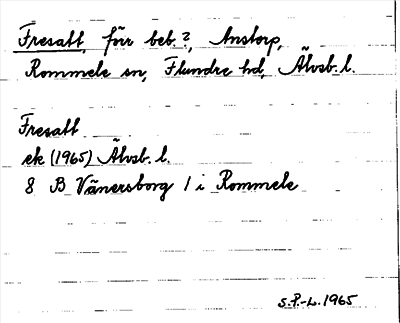 Fresatt, förr beb.?, Anstorp,
Rommele sn, Flundre hd, Älvsb. l.
Fresatt
ek (1965) Älvsb. l.
8 B Vänersborg 1 i Rommele
S.P.-L. 1965